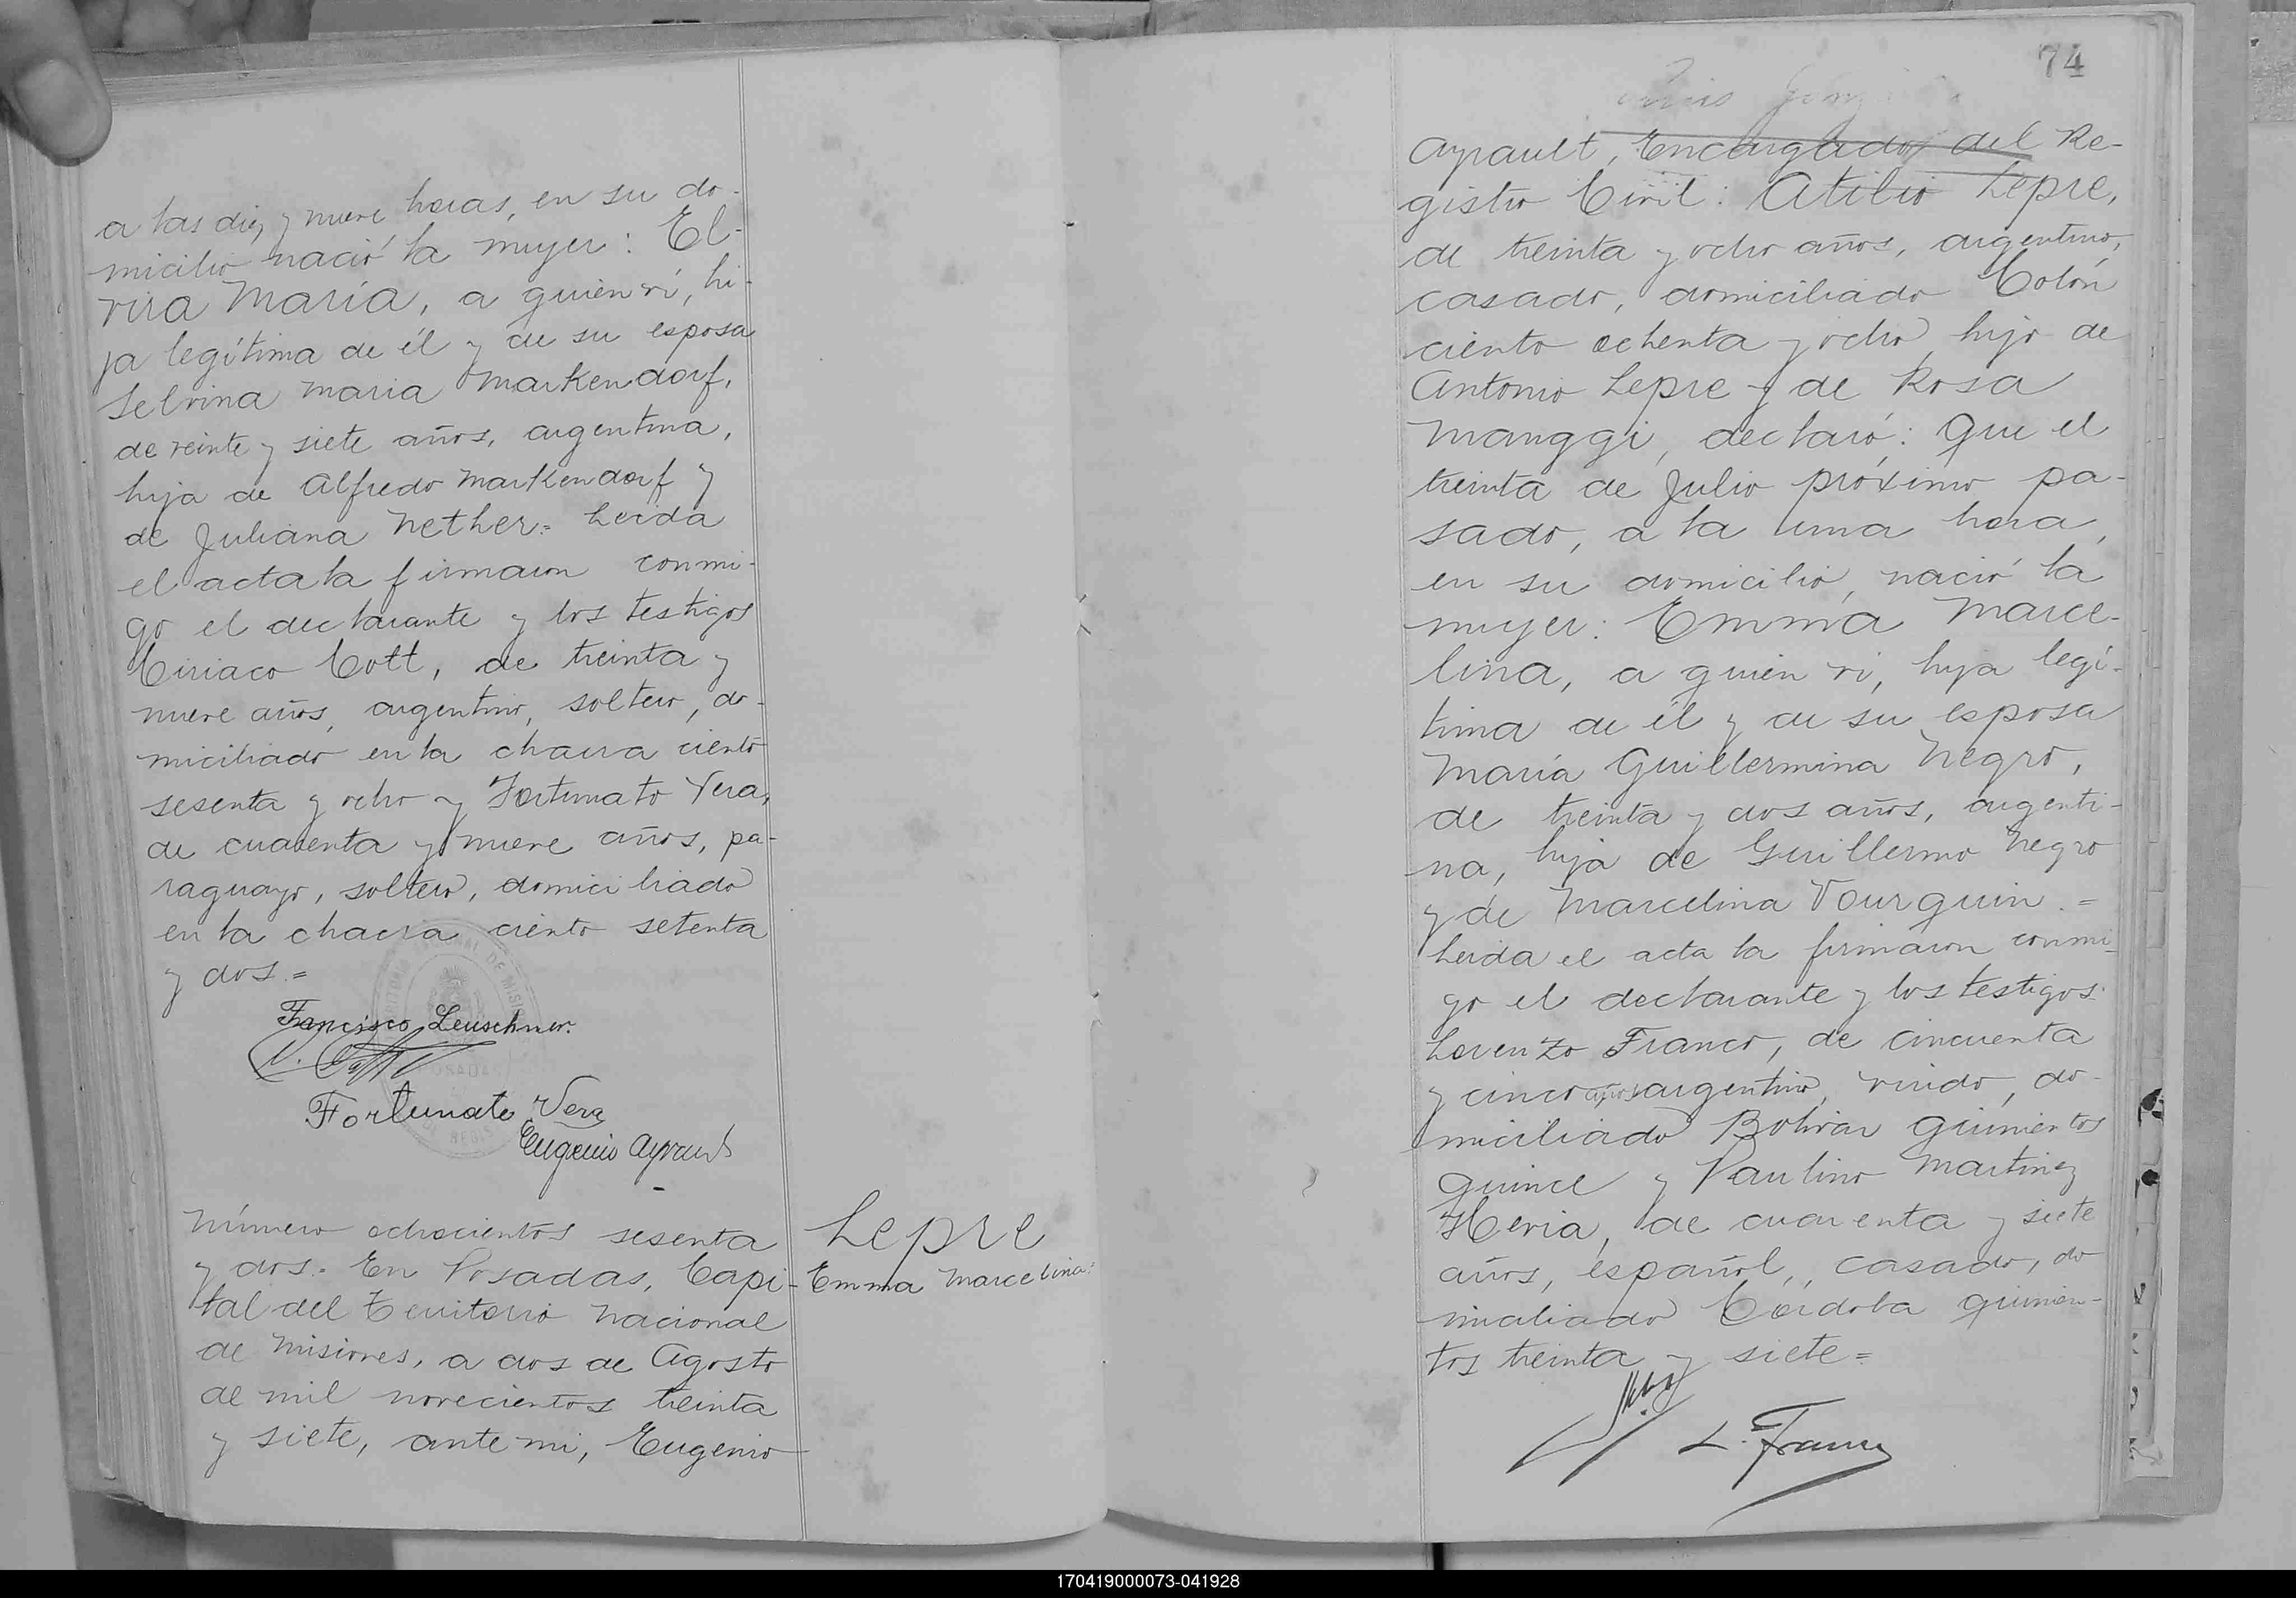 a las diez y nueve horas, en su do-
micilio nació la mujer: El-
vira María, a quien ví, hi-
ja legítima de él y de su esposa
Selvina Maria Markendorf,
de veinte y siete años, argentina,
hija de Alfredo Markendorf y
de Juliana Nether.= Leida
el acta la firmaron conmi-
go el declarante y los testigos
Ciriaco Cott, de treinta y
nueve años, argentino, soltero, do-
miciliado en la chacra ciento
sesenta y ocho y Fortunato Vera,
de cuarenta y nueve años, pa-
raguayo, soltero, domiciliado
en la chacra ciento setenta
y dos.=
Francisco Leuschner.
Fortunato Vera
Eugenio Ayrault
Número ochocientos sesenta
y dos.= En Posadas, Capi-
tal del Territorio Nacional
de Misiones, a dos de Agosto
de mil novecientos treinta
y siete, ante mi, Eugenio
Lepre
Emma Marcelina:
74
Ayrault, Encargado del Re-
gistro Civil: Atilio Lepre,
de treinta y ocho años, argentino,
casado, domiciliado Colón
ciento ochenta y ocho, hijo de
Antonio Lepre y de Rosa
Manggi, declaró: Que el
treinta de Julio próximo pa-
sado, a la una hora,
en su domicilio, nació la
mujer: Emma Marce-
lina, a quien vi, hija legí-
tima de él y de su esposa
María Guillermina Negro,
de treinta y dos años, argenti-
na, hija de Guillermo Negro
y de Marcelina Tourguin.=
Leida el acta la firmaron conmi-
go el declarante y los testigos:
Lorenzo Franco, de cincuenta
y cinco años argentino, viudo, do-
miciliado Bolivar quinientos
quince y Paulino Martinez
Heria, de cuarenta y siete
años, español, casado, do
miciliado Córdoba quinien-
tos treinta y siete=
L. Franco
170419000073-041928